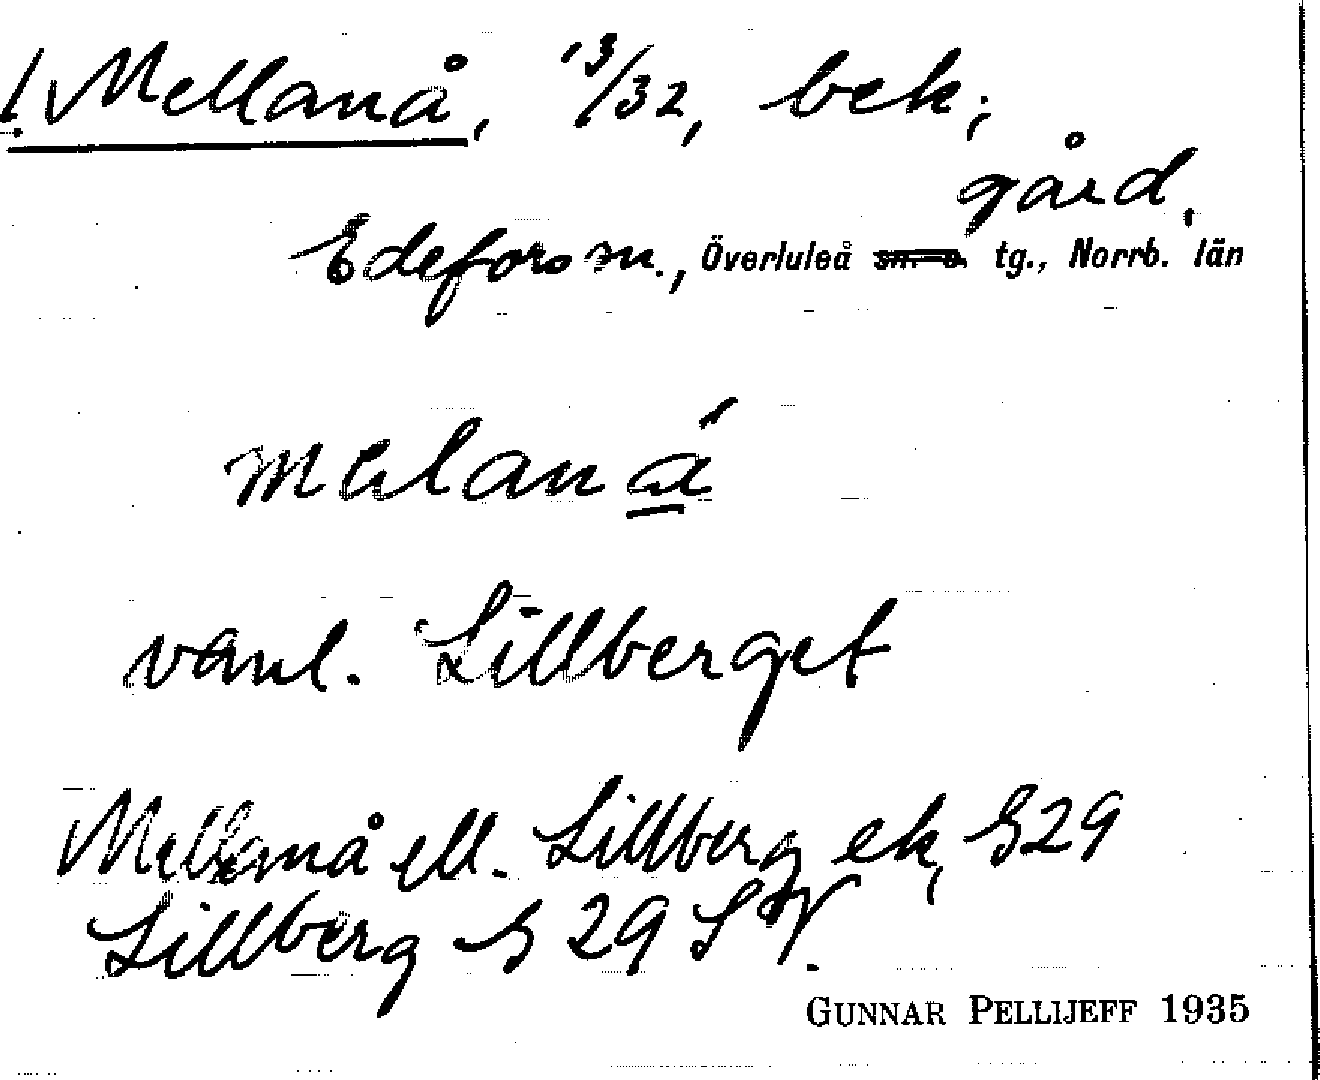 ! Mellanå, 13/32, bek;
gård,
Edefors sn., Överluleå sn. o. tg., Norrb. län
melaná
vanl. Lillberget
Mellanå ell. Lillberg ek, G29
Lillberg G 29 SV.
GUNNAR PELLIJEFF 1935